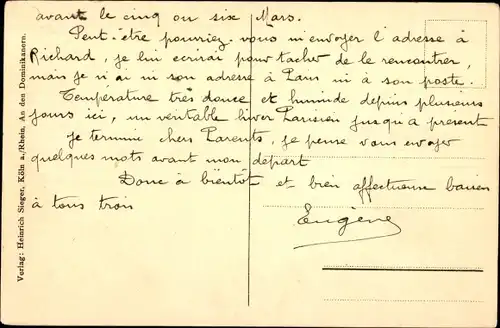 avant le cinq ou six Mars.
Peut-être pourriez-vous m'envoyer l'adresse à
Richard, je lui écrirai pour tacher de le rencontrer,
mais je n'ai ni son adresse à Paris ni à son poste.
Température très douce et humide depuis plusieurs
jours ici, un véritable hiver Parisien jusqu'à présent
Je termine chers Parents, je pense vous envoyer
quelques mots avant mon départ
Donc à bientôt et bien affectueux baisers
à tous trois
Eugène
Verlag: Heinrich Sieger, Köln a./Rhein, An den Dominikanern.